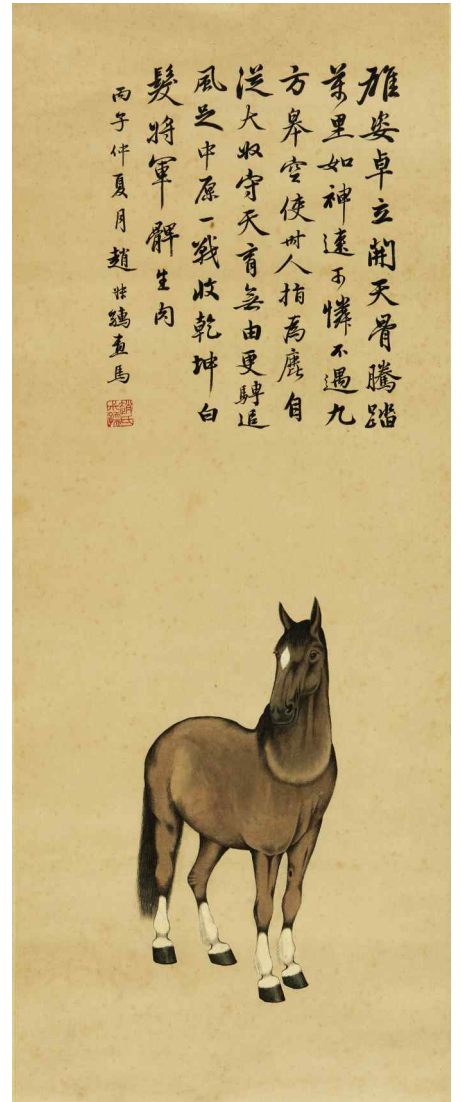 雄姿卓立開天骨騰踏
萬里如神速可憐不遇九
方皋空使時人指為鹿自
從大奴守天育無由更騁追
風足中原一戰收乾坤白
髮將軍髀生肉
丙子仲夏月趙叔孺畫馬
趙氏叔孺